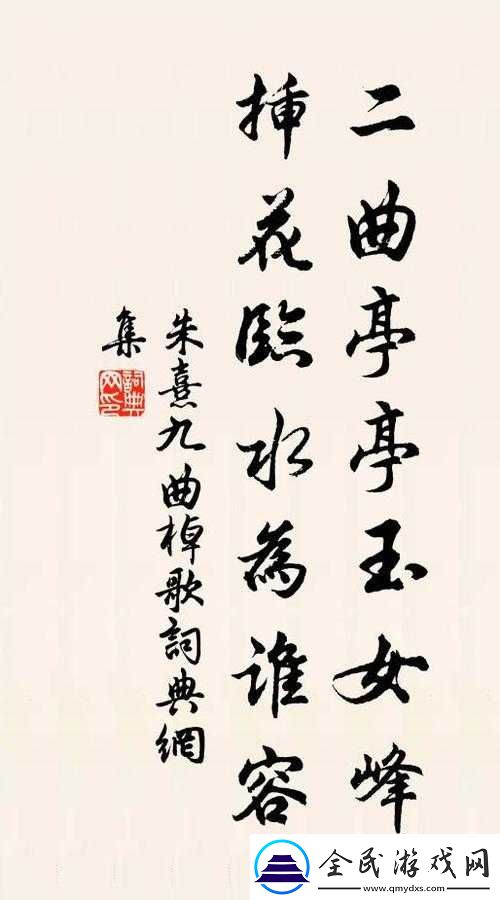 二曲亭亭玉女峰
插花臨水為誰容
朱熹九曲棹歌詞典網
集
詞典網印
全民游戏网
www.qmydxs.com